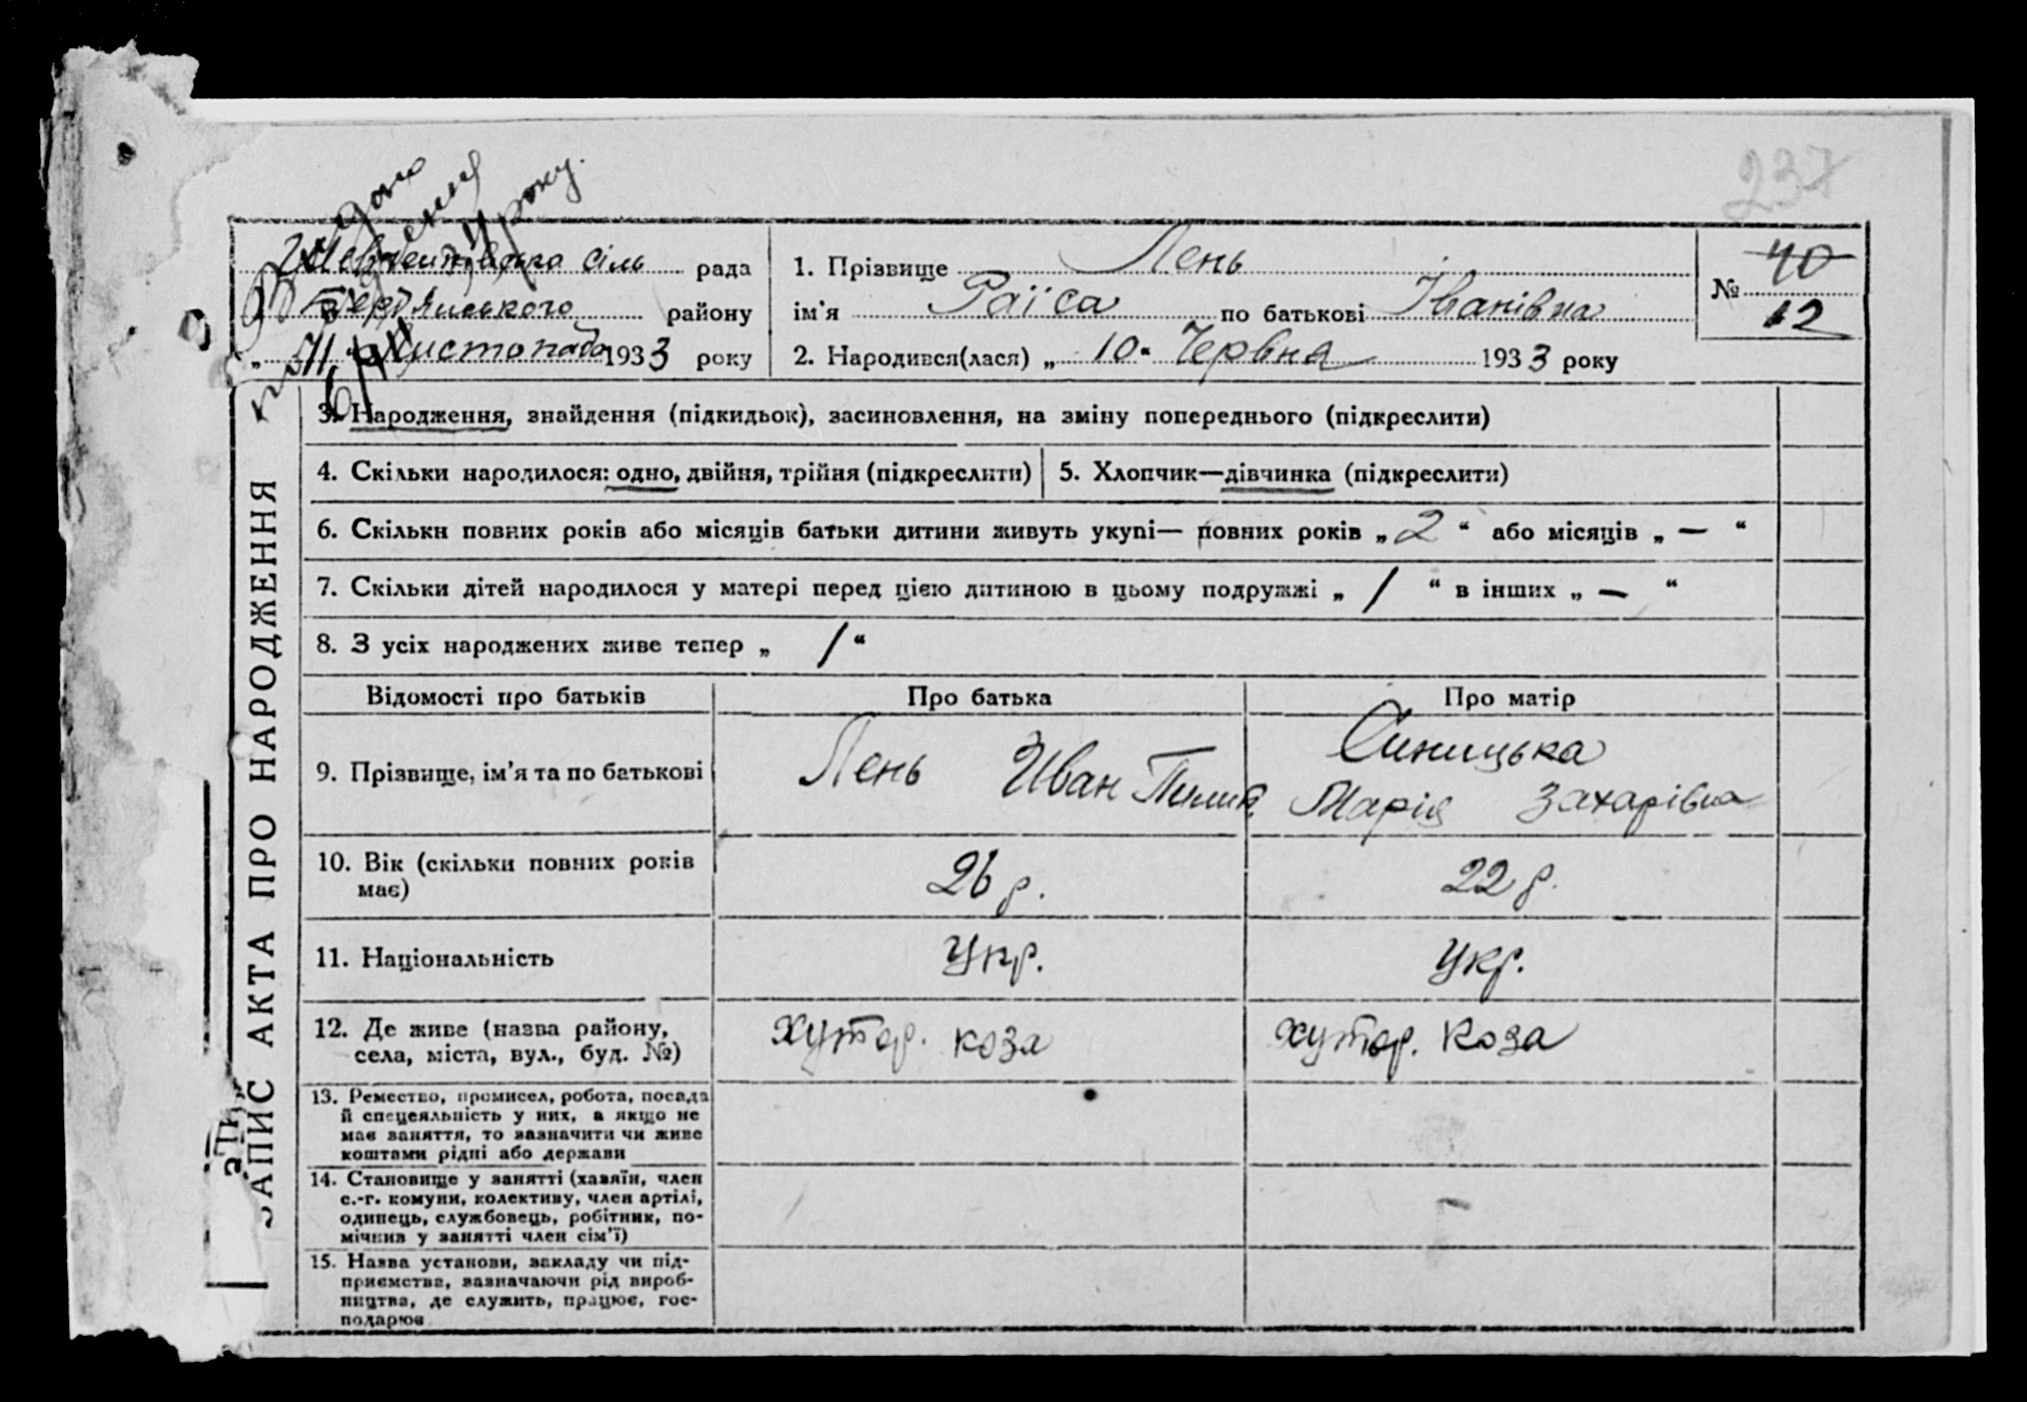 237
Шевченківська сіль рада
Бердянського району
„ 11 “ Листопада 1933 року
1. Прізвище Лень
ім'я Раїса по батькові Іванівна
2. Народився(лася) „ 10 “ Червня 1933 року
№ 40
12
ЗАПИС АКТА ПРО НАРОДЖЕННЯ
3. Народження, знайдення (підкидьок), засиновлення, на зміну попереднього (підкреслити)
4. Скільки народилося: одно, двійня, трійня (підкреслити) 5. Хлопчик—дівчинка (підкреслити)
6. Скільки повних років або місяців батьки дитини живуть укупі— повних років „ 2 “ або місяців „ — “
7. Скільки дітей народилося у матері перед цією дитиною в цьому подружжі „ 1 “ в інших „ — “
8. З усіх народжених живе тепер „ 1 “
Відомості про батьків Про батька Про матір
9. Прізвище, ім'я та по батькові Лень Иван Пилип Синицька
Марія Захарівна
10. Вік (скільки повних років
має) 26 р. 22 р.
11. Національність Укр. Укр.
12. Де живе (назва району,
села, міста, вул., буд. №) хутор. коза хутор. Коза
13. Ремество, промисел, робота, посада
й спецеяльність у них, а якщо не
має заняття, то зазначити чи живе
коштами рідні або держави
14. Становище у занятті (хазяїн, член
с.-г. комуни, колективу, член артілі,
одинець, службовець, робітник, по-
мічнив у занятті член сім'ї)
15. Назва установи, закладу чи під-
приємства, зазначаючи рід вироб-
ництва, де служить, працює, гос-
подарює